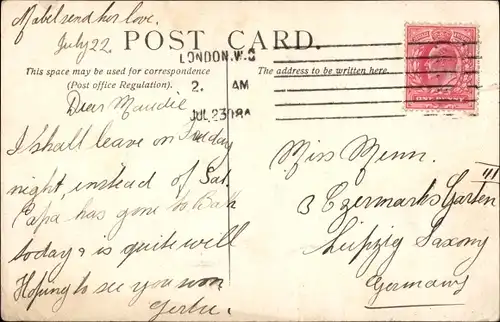 Mabel send her love.
July 22.
POST CARD.
LONDON.W.C
2. AM
JUL 23 08A
This space may be used for correspondence
(Post office Regulation).
The address to be written here.
ONE PENNY
Dear Maudie
I shall leave on Friday
night, instead of Sat.
Papa has gone to Bath
today & is quite well
Hoping to see you soon
Miss Menn.
III
3 Czermarks Garten
Leipzig Saxony
Germany